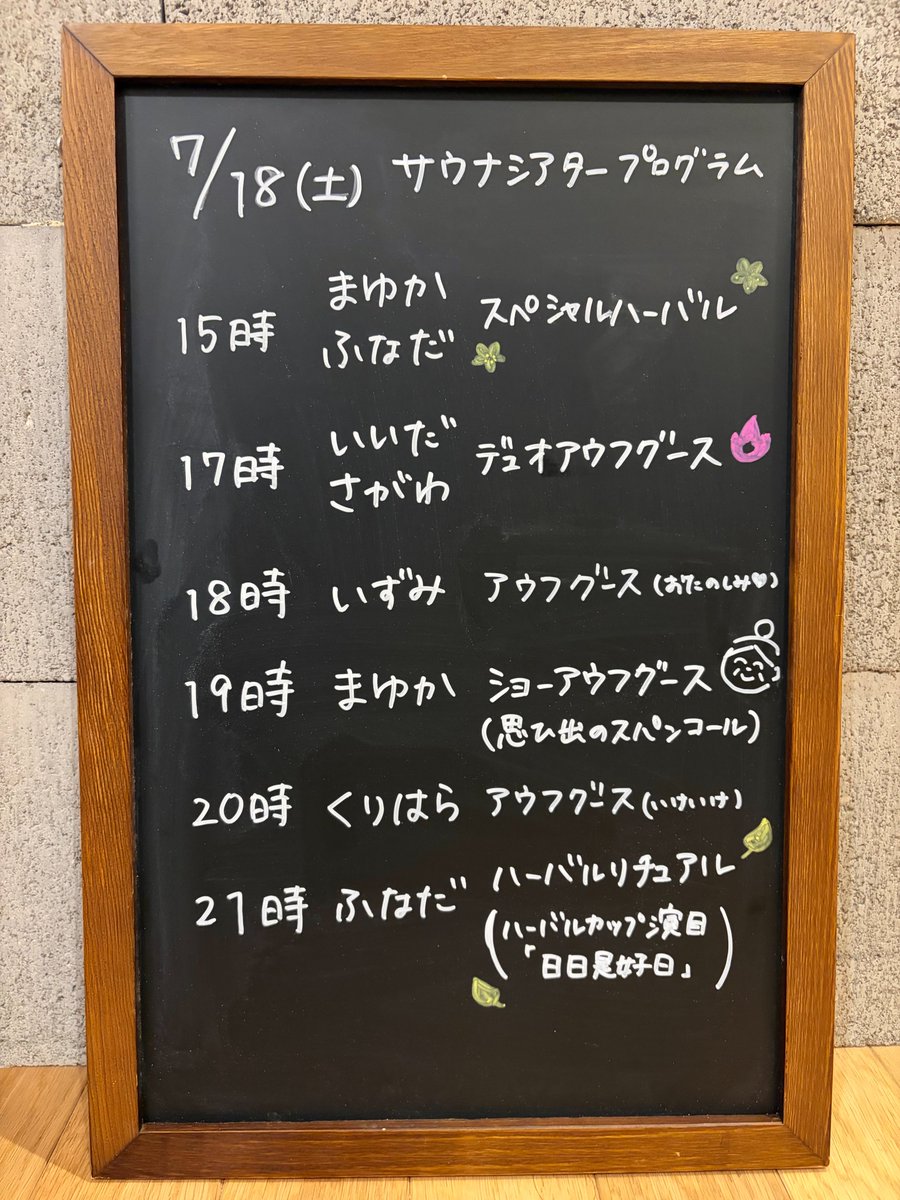 7/18(土) サウナシアタープログラム
15時 まゆか ふなだ スペシャルハーバル
17時 いいだ さがわ デュオアウフグース
18時 いずみ アウフグース(おたのしみ♡)
19時 まゆか ショーアウフグース
(思ひ出のスパンコール)
20時 くりはら アウフグース(いけいけ)
21時 ふなだ ハーバルリチュアル
(ハーバルカップ演目
「日日是好日」)